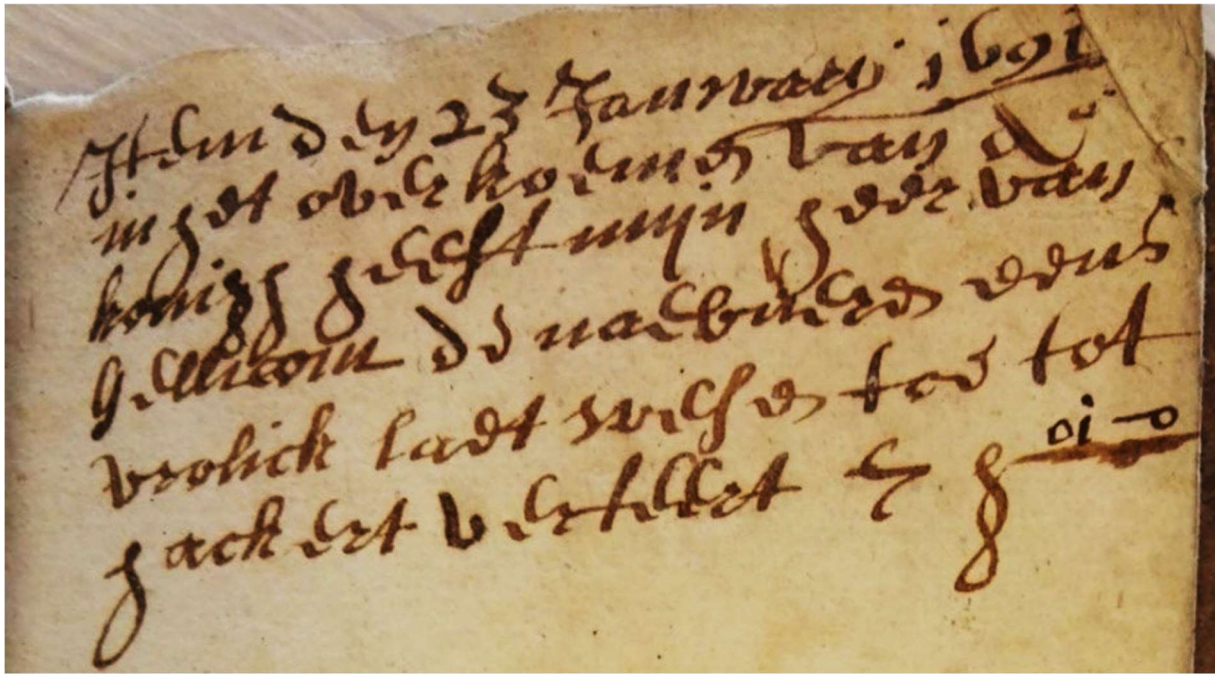 Item den 23 Januarij 1691
in het overkoemen van de
koningh heeft mijn heer van
Gellicom de naebueren eens
vrolick laeten wesen toe tot
hackert verteert 7 h 01-0